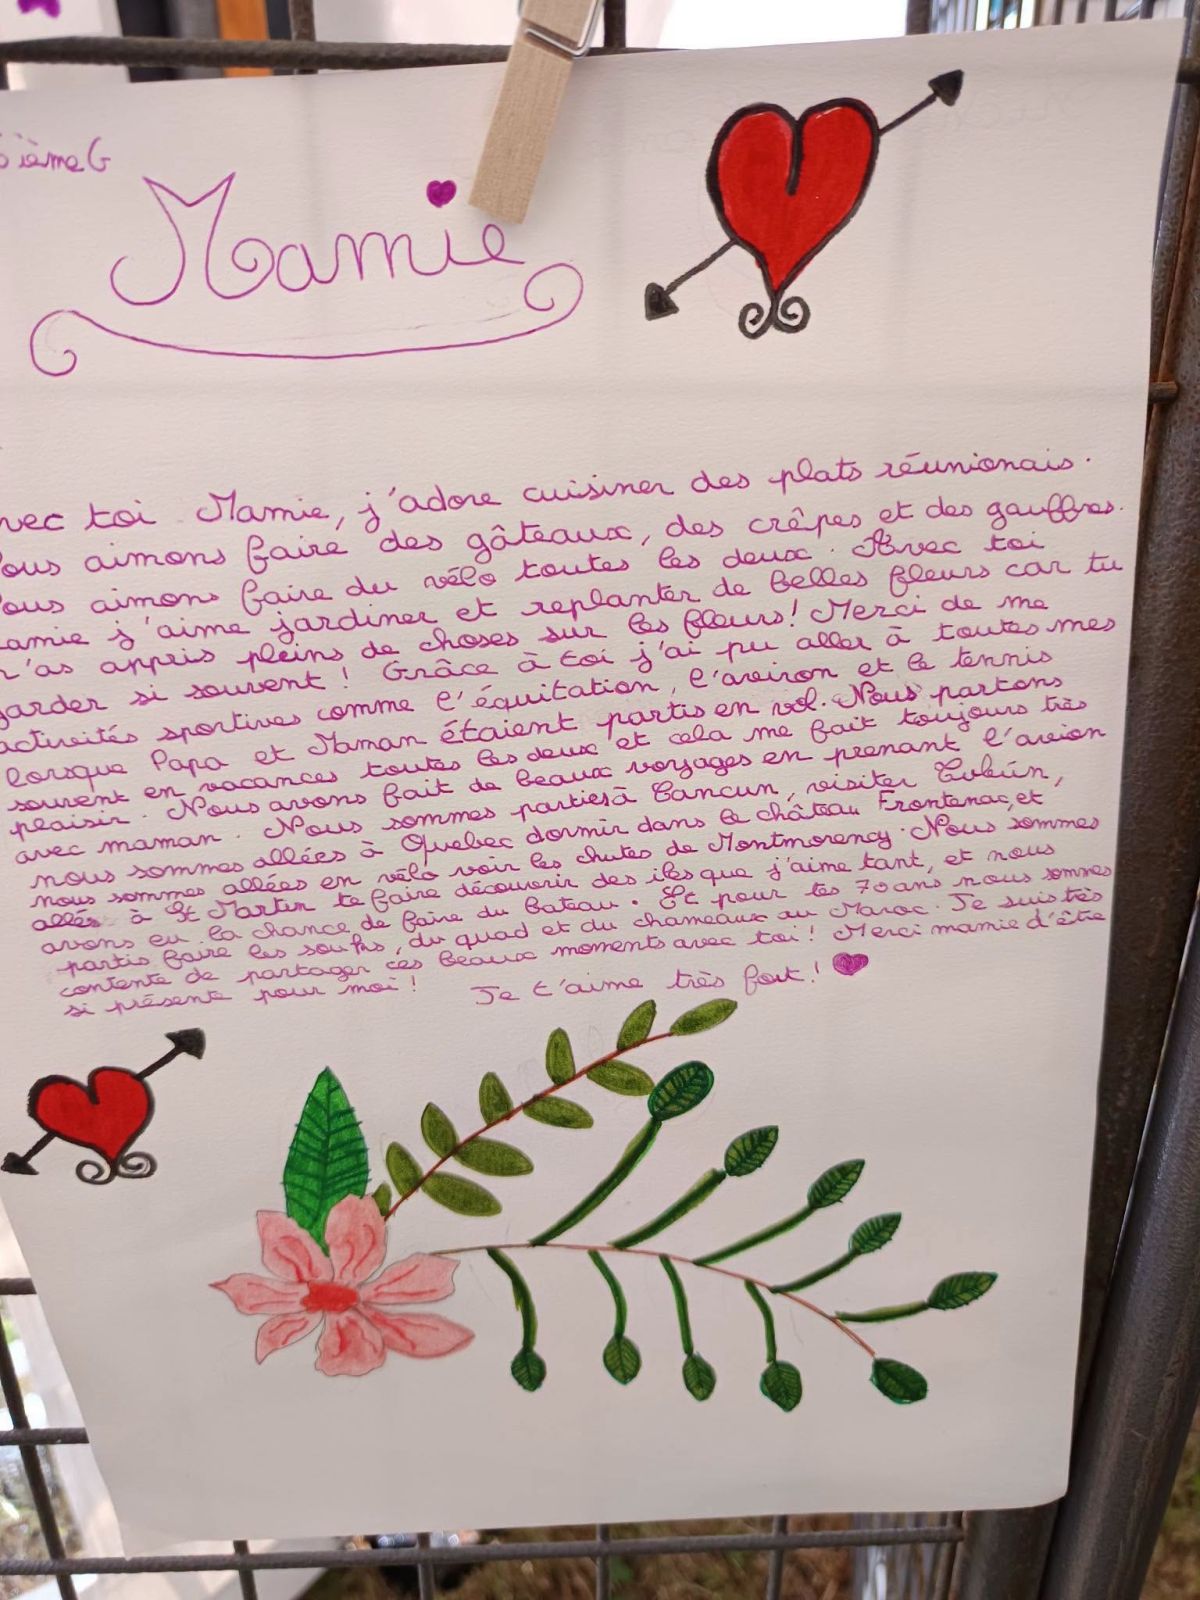 ièmeG
Mamie
vec toi Mamie, j'adore cuisiner des plats réunionais.
ous aimons faire des gâteaux, des crêpes et des gauffres.
ous aimons faire du vélo toutes les deux. Avec toi
amie j'aime jardiner et replanter de belles fleurs car tu
'as appris pleins de choses sur les fleurs! Merci de me
garder si souvent! Grâce à toi j'ai pu aller à toutes mes
activités sportives comme l'équitation, l'aviron et le tennis
lorsque Papa et Maman étaient partis en vol. Nous partons
souvent en vacances toutes les deux et cela me fait toujours très
plaisir. Nous avons fait de beaux voyages en prenant l'avion
avec maman. Nous sommes parties à Cancun, visiter Tulún,
nous sommes allées à Quebec dormir dans le château Frontenac, et
nous sommes allées en vélo voir les chutes de Montmorency. Nous sommes
allés à St Martin te faire découvrir des iles que j'aime tant, et nous
avons eu la chance de faire du bateau. Et pour tes 70 ans nous sommes
partis faire les souks, du quad et du chameaux au Maroc. Je suis très
contente de partager ces beaux moments avec toi! Merci mamie d'être
si présente pour moi! Je t'aime très fort!